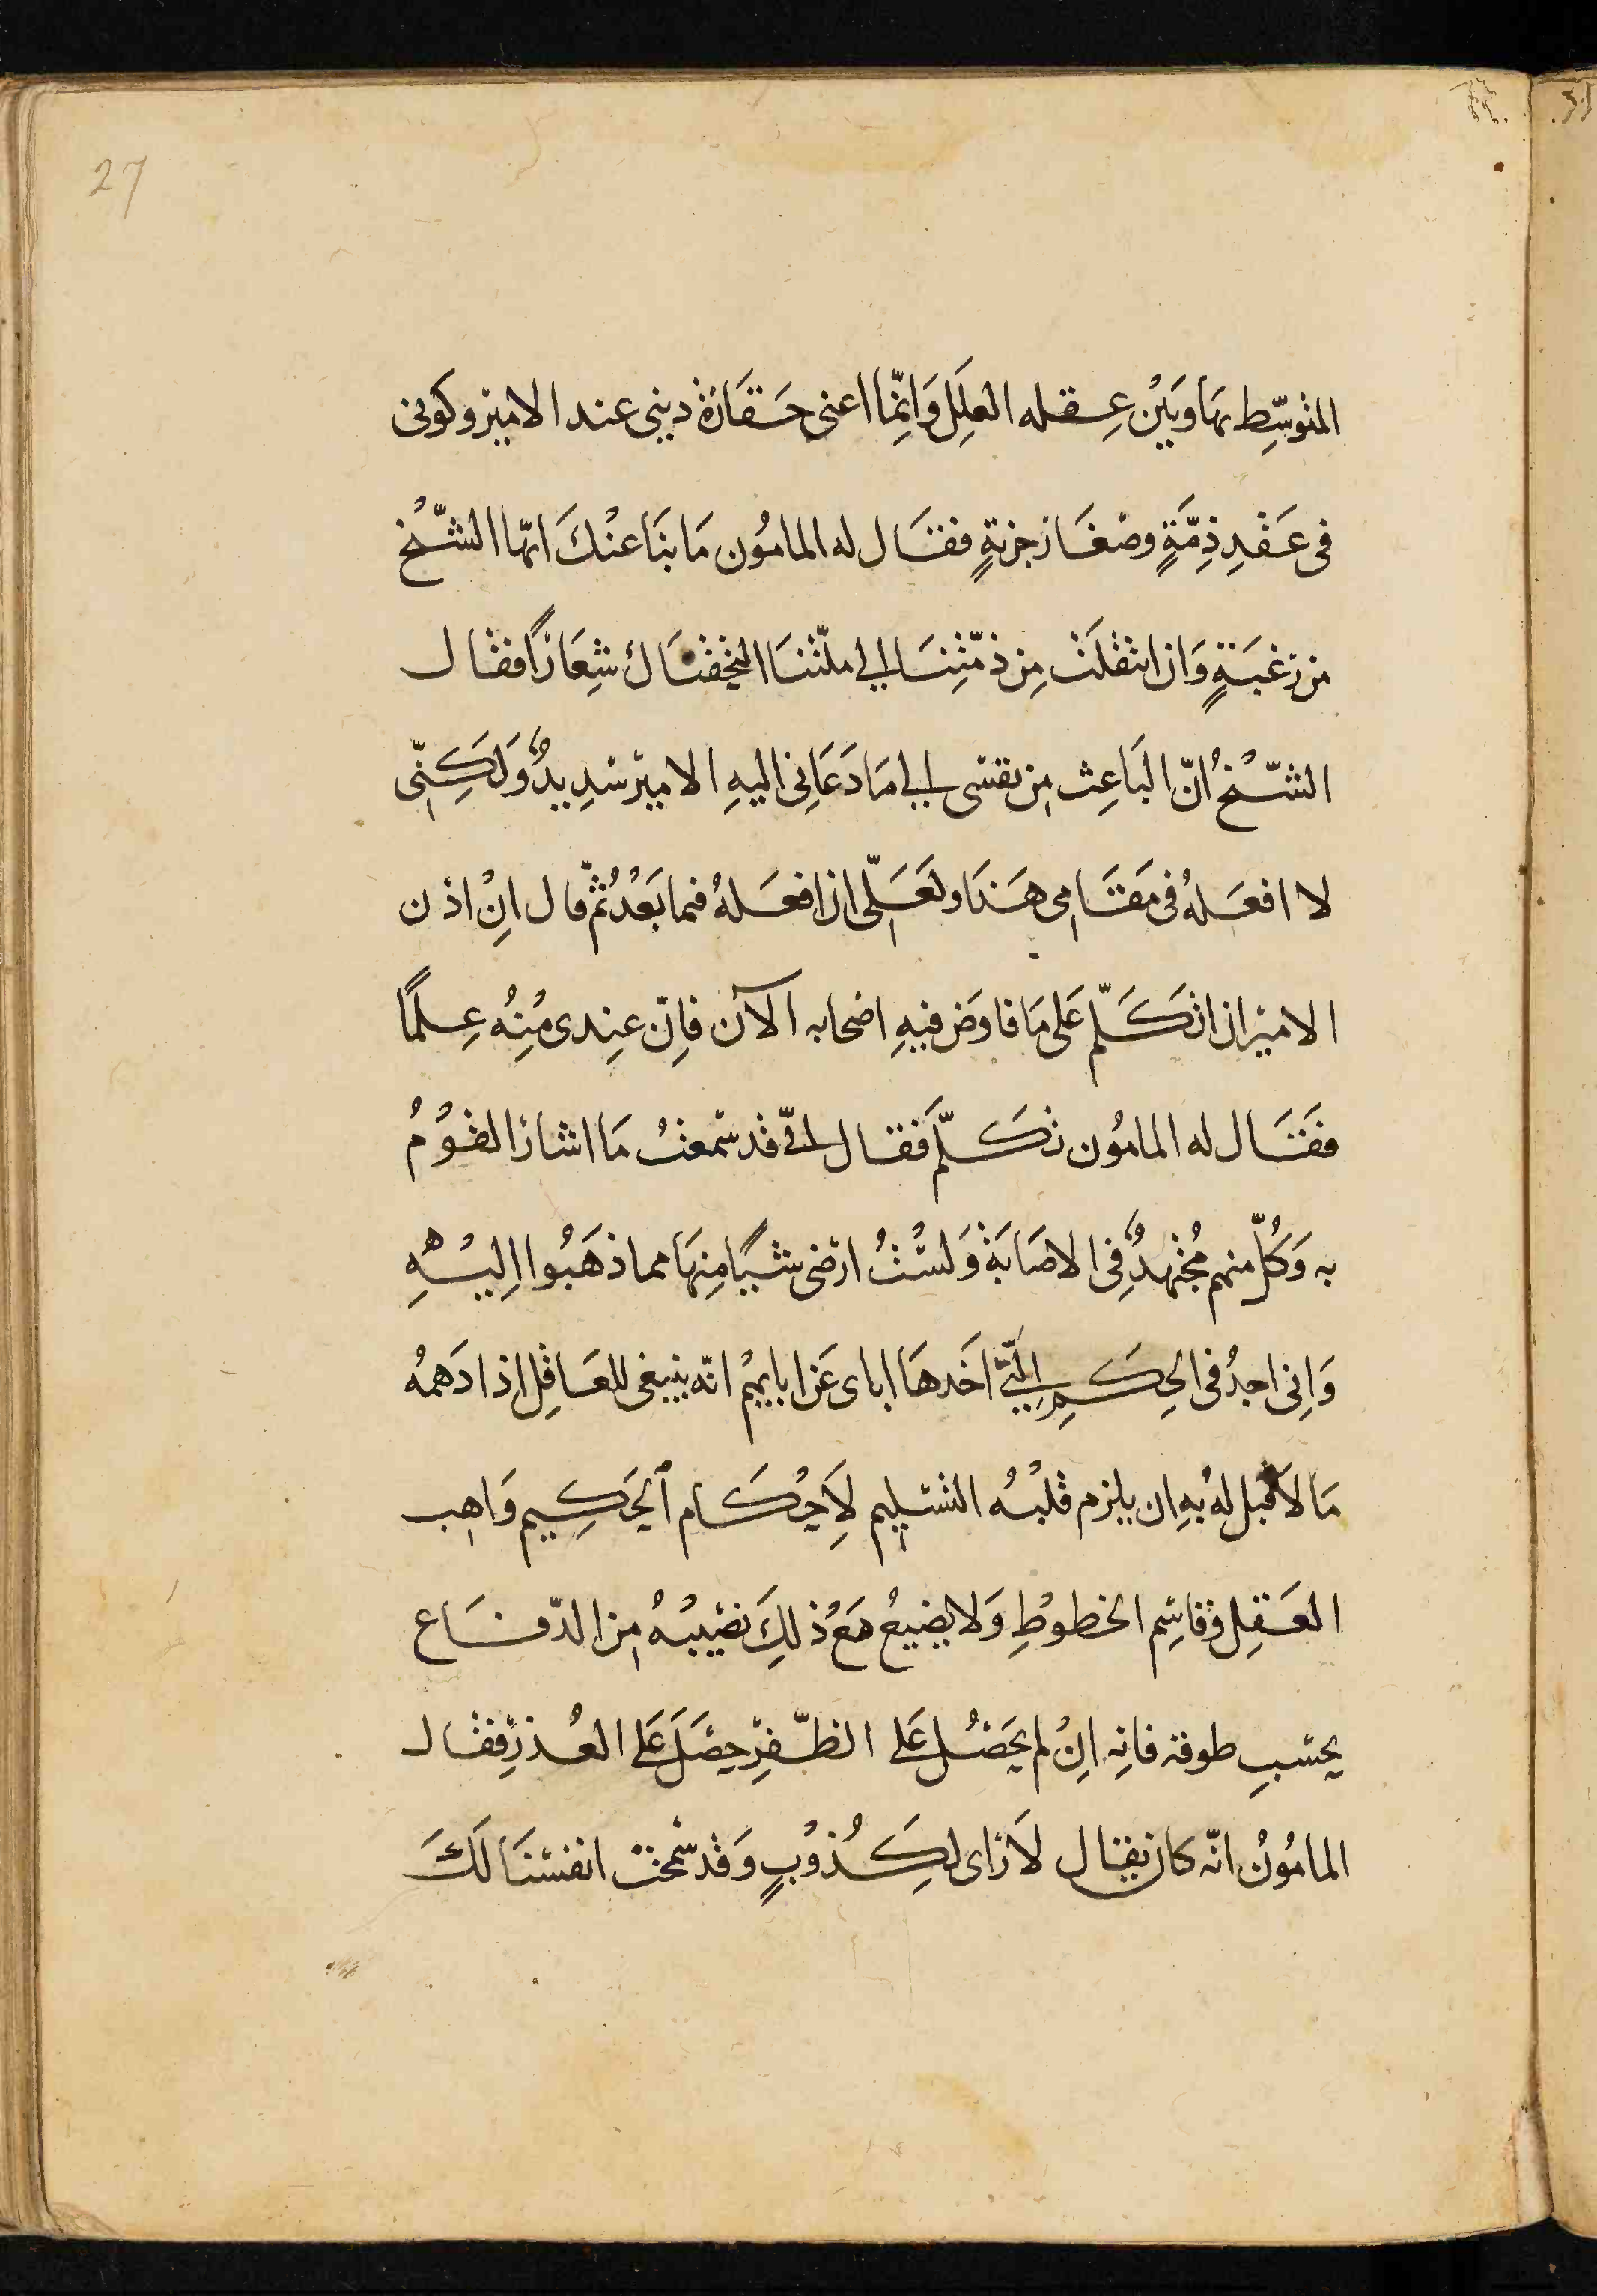 27
المتوسّط بها وبين عقله العلل وانّما اعنى حقارة دينى عند الامير وكونى
فى عقد ذمّةٍ وصغار جزيةٍ فقال له المامون ما بنا عنك ايّها الشّيخ
من رغبةٍ وان انتقلت من ذمّتنا الى ملّتنا اتخذناك شعارًا فقال
الشّيخ انّ الباعث من نفسى الى ما دعانى اليه الامير شديدٌ ولكنّى
لا افعله فى مقامى هذا ولعلّى ان افعله فيما بعد ثمّ قال ان اذن
الامير ان اتكلّم على ما فاوض فيه اصحابه الآن فانّ عندى منه علمًا
فقال له المامون تكلّم فقال انّى قد سمعت ما اشار القوم
به وكلّ منهم مجتهدٌ فى الاصابة ولست ارضى شيًا منها مما ذهبوا اليه
وانى اجد فى الحكم الّتى اخدها اباى عن ابايهم انّه ينبغى للعاقل اذا دهمه
ما لا قبل له به ان يلزم قلبه التسليم لاحكام الحكيم واهب
العقل وقاسم الحظوظ ولا يضيع مع ذلك نصيبه من الدّفاع
بحسب طوقه فانه ان لم يحصل على الظّفر حصل على العذر فقال
المامون انّه كان يقال لا راى لكذوبٍ وقد سمحت انفسنا لك